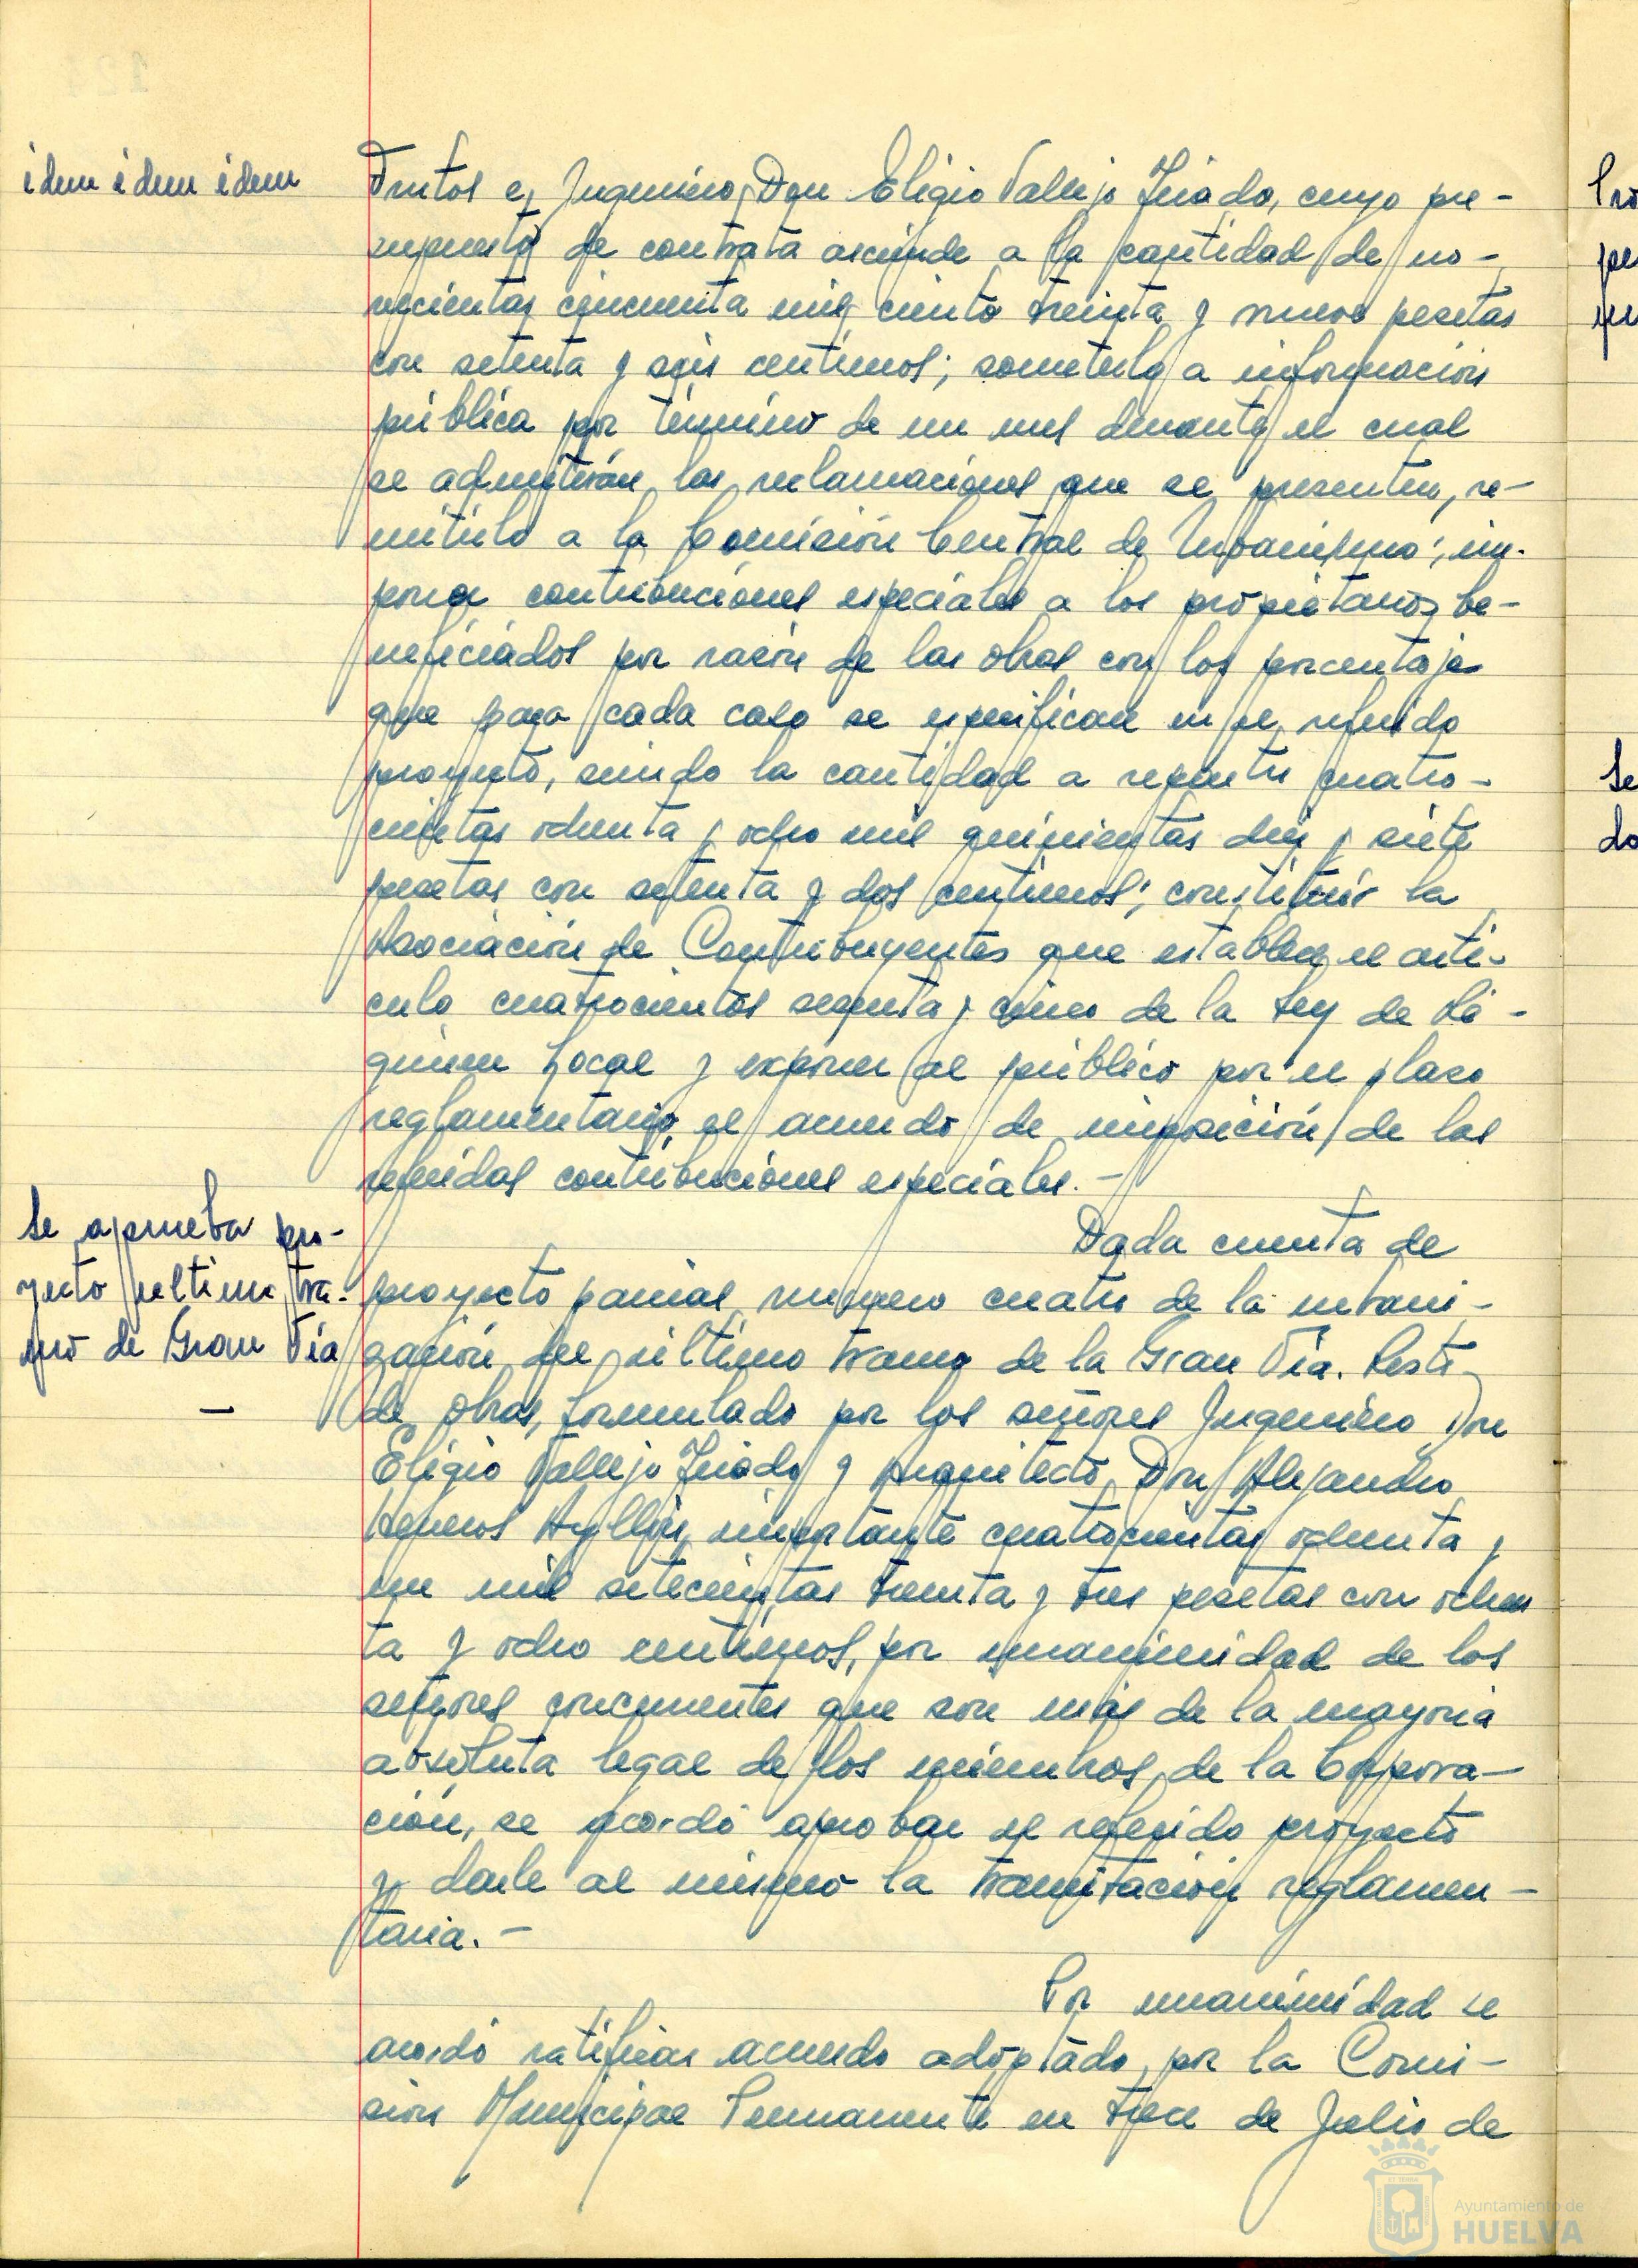 idem idem idem
Frutos e Ingeniero, Don Eligio Vallejo Triado, cuyo pre-
supuesto de contrata asciende a la cantidad de no-
vecientas cincuenta mil ciento treinta y nueve pesetas
con setenta y seis centimos; someterlo a información
pública por término de un mes durante el cual
se admitirán las reclamaciones que se presenten, re-
mitirlo a la Comisión Central de Urbanismo; im-
poner contribuciones especiales a los propietarios be-
neficiados por razón de las obras con los porcentajes
que para cada caso se especifican en el referido
proyecto, siendo la cantidad a repartir cuatro-
cientas ochenta y ocho mil quinientas diez y siete
pesetas con setenta y dos centimos; constituir la
Asociación de Contribuyentes que establece el artí-
culo cuatrocientos sesenta y cinco de la Ley de Ré-
gimen Local y exponer al público por el plazo
reglamentario el acuerdo de imposición de las
referidas contribuciones especiales.-
Se aprueba pro-
yecto último tra-
mo de Gran Vía
—
Dada cuenta de
proyecto parcial número cuatro de la urbani-
zación del último tramo de la Gran Vía. Resto
de obras, formulado por los señores Ingeniero Don
Eligio Vallejo Triado y Arquitecto Don Alejandro
Herreros Ayllón, importante cuatrocientas ochenta y
un mil setecientas treinta y tres pesetas con ochen
ta y ocho centimos, por unanimidad de los
señores concurrentes que son más de la mayoría
absoluta legal de los miembros de la Corpora-
ción, se acordó aprobar el referido proyecto
y darle al mismo la tramitación reglamen-
taria.-
Por unanimidad se
acordó ratificar acuerdo adoptado por la Comi-
sión Municipal Permanente en trece de Julio de
Ayuntamiento de
HUELVA